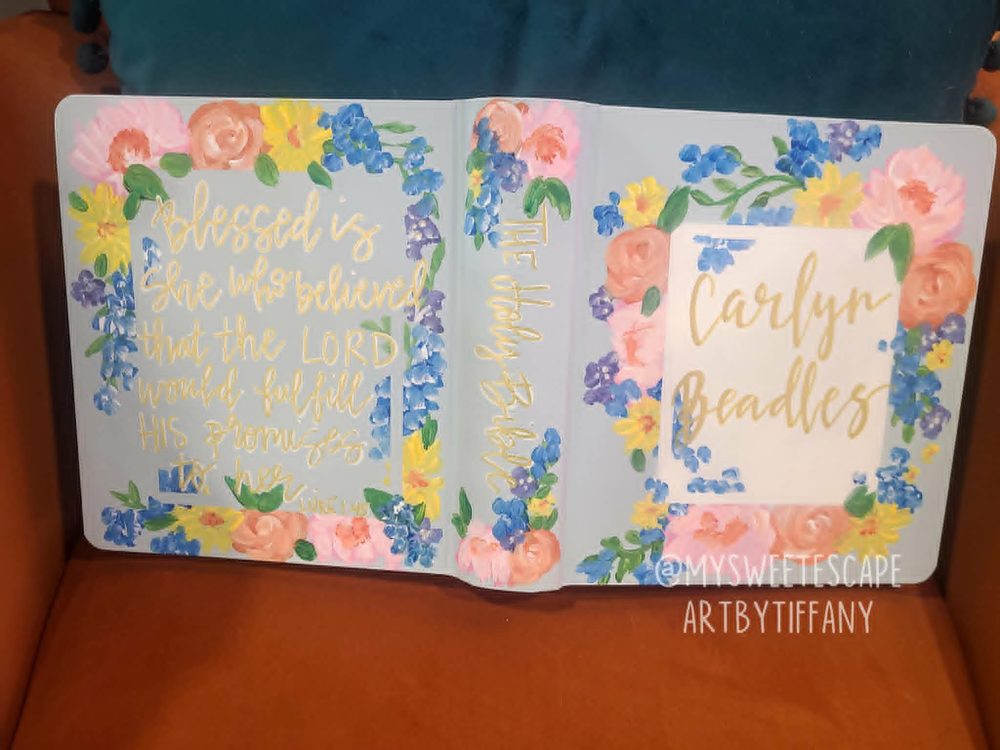 Blessed is
She who believed
that the LORD
would fulfill
HIS promises
to her
LUKE 1:45
THE Holy Bible
Carlyn
Beadles
@MYSWEETESCAPE
ARTBYTIFFANY